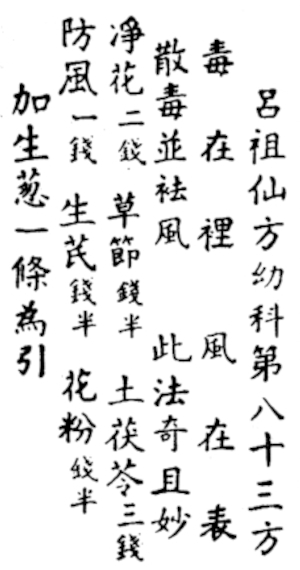 呂祖仙方幼科第八十三方
毒在裡 風在表
散毒並袪風 此法奇且妙
淨花二錢 草節錢半 土茯苓三錢
防風一錢 生芪錢半 花粉錢半
加生葱一條為引